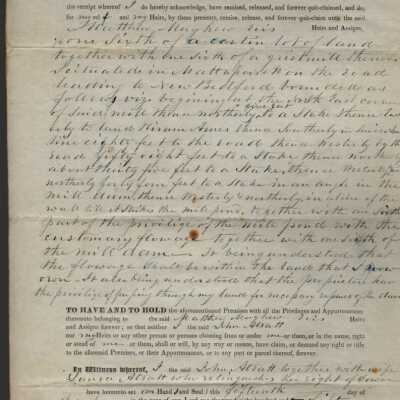 the receipt whereof I do hereby acknowledge, have remised, released, and forever quit-claimed, and do,
for my self & my Heirs, by these presents, remise, release, and forever quit-claim unto the said
Matthew Mayhew His Heirs and Assigns,
one sixth of a certin lot of land
together with one sixth of a gristmill thereon
Scituated in Mattapoisett on the road
leading to New Bedford bounded as
follows viz begining at the North East corner
of Said mill thence northerly to a Stake thence
by to land Hiram Ames thence Southerly in Said
line eighty feet to the road thence Westerly by the
road fifty eight feet to a Stake thence
about thirty five feet to a Stake, thence
northerly forty four feet to a Stake in an angle in the
mill dam, thence Westerly & northerly in a line of the
wall till it strikes the mill pond, together with one sixth
part of the privilige of the mill pond with the
customary flowage together with one sixth of
the mill dam It being understood that
the flowage shall be within the land that I now
own It also being understood that the proprietors has
the privilige of passing through my land for necessary repairs of the dam
TO HAVE AND TO HOLD the aforementioned Premises with all the Privileges and Appurtenances
thereunto belonging to the said Matthew Mayhew His Heirs
and Assigns forever; so that neither I the said John Atsatt
nor my Heirs or any other person or persons claiming from or under me or them, or in the name, right
or stead of me or them, shall or will, by any way or means, have, claim, or demand any right or title
to the aforesaid Premises, or their Appurtenances, or to any part or parcel thereof, forever.
In Witness whereof, I the said John Atsatt together with
Atsatt who relinquishes her right of Dower
have hereunto set our Hand and Seal this day of